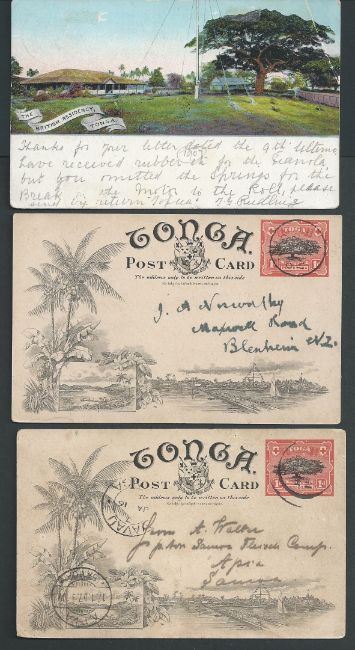 THE
BRITISH RESIDENCY,
TONGA.
Thanks for your letter dated the 9th Ultimo
(1907)
have received rubber for the Pianola
but you omitted the Springs for the
Break the Motor to the Roll, please
send by return
TONGA.
POST CARD
The address only to be written on this side
TONGA
1d 1d
J. A. Norworthy
Maxwell Road
Blenheim N.Z.
TONGA.
POST CARD
The address only to be written on this side
TONGA
1d 1d
VAVAU
JA
from A.
Samoa Comp.
Apia
Samoa